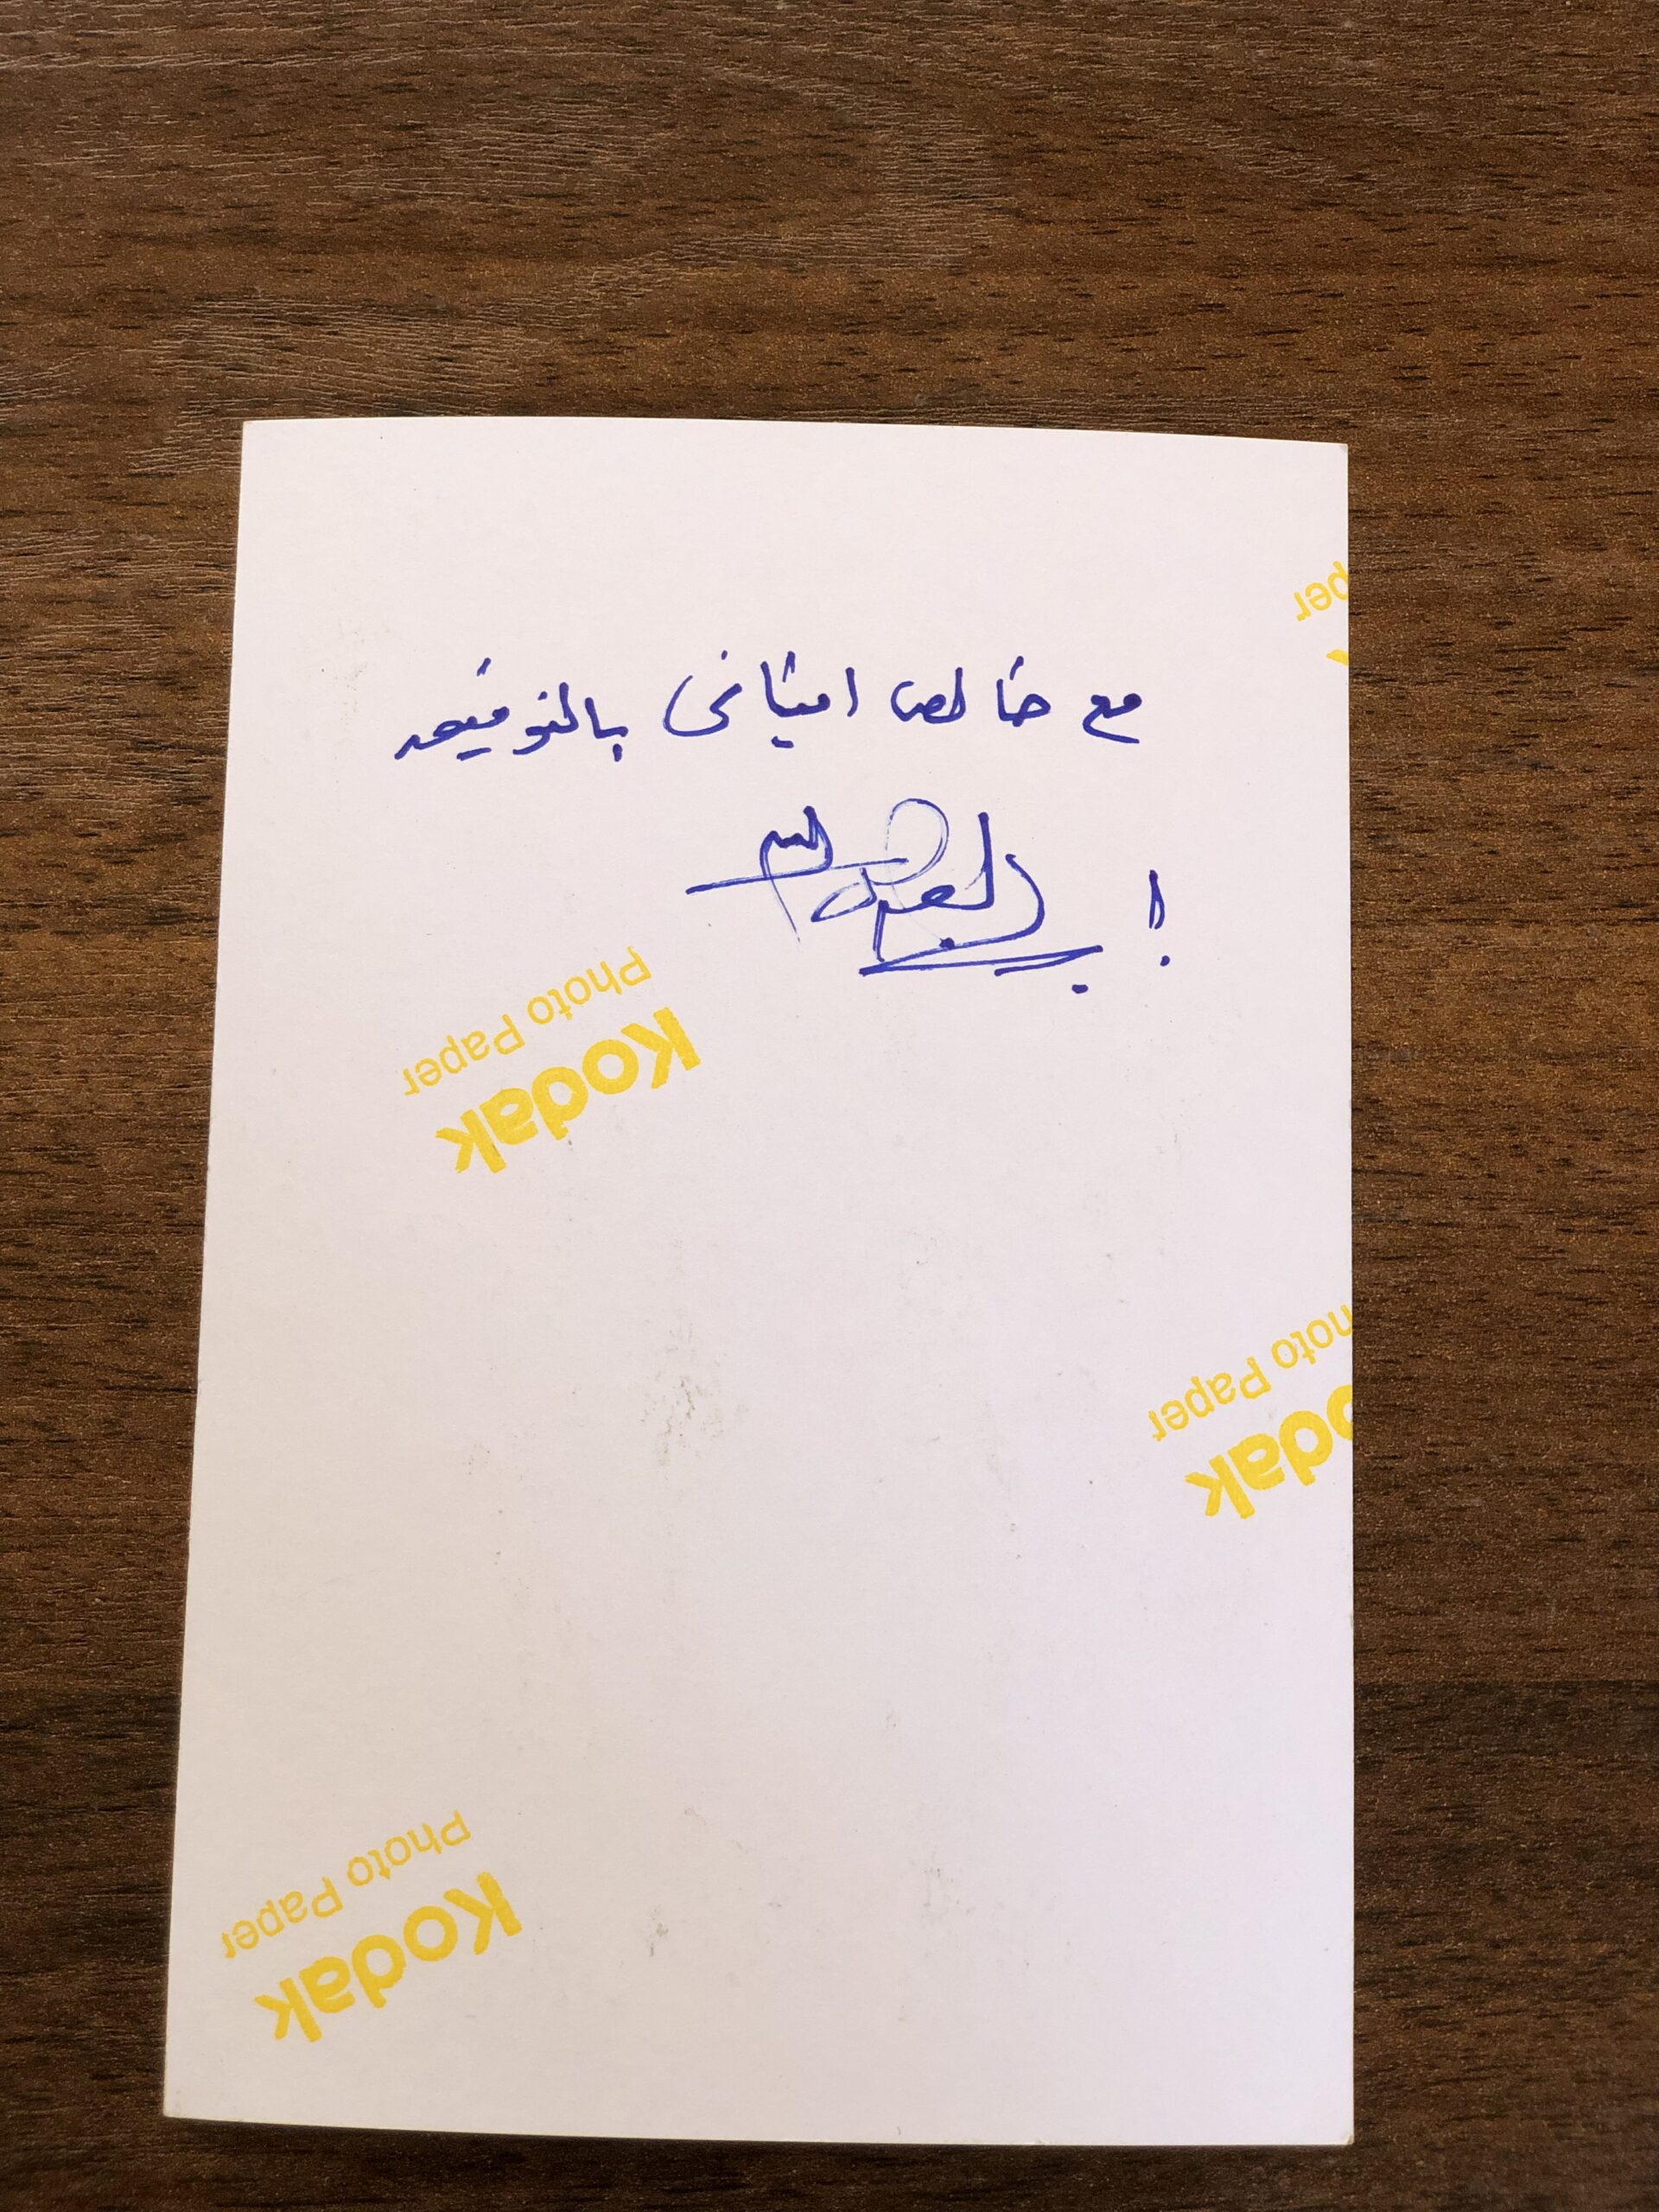 مع خالص امتناني بالتوفيق
Photo Paper
Kodak
Photo Paper
Kodak
Photo Paper
Kodak